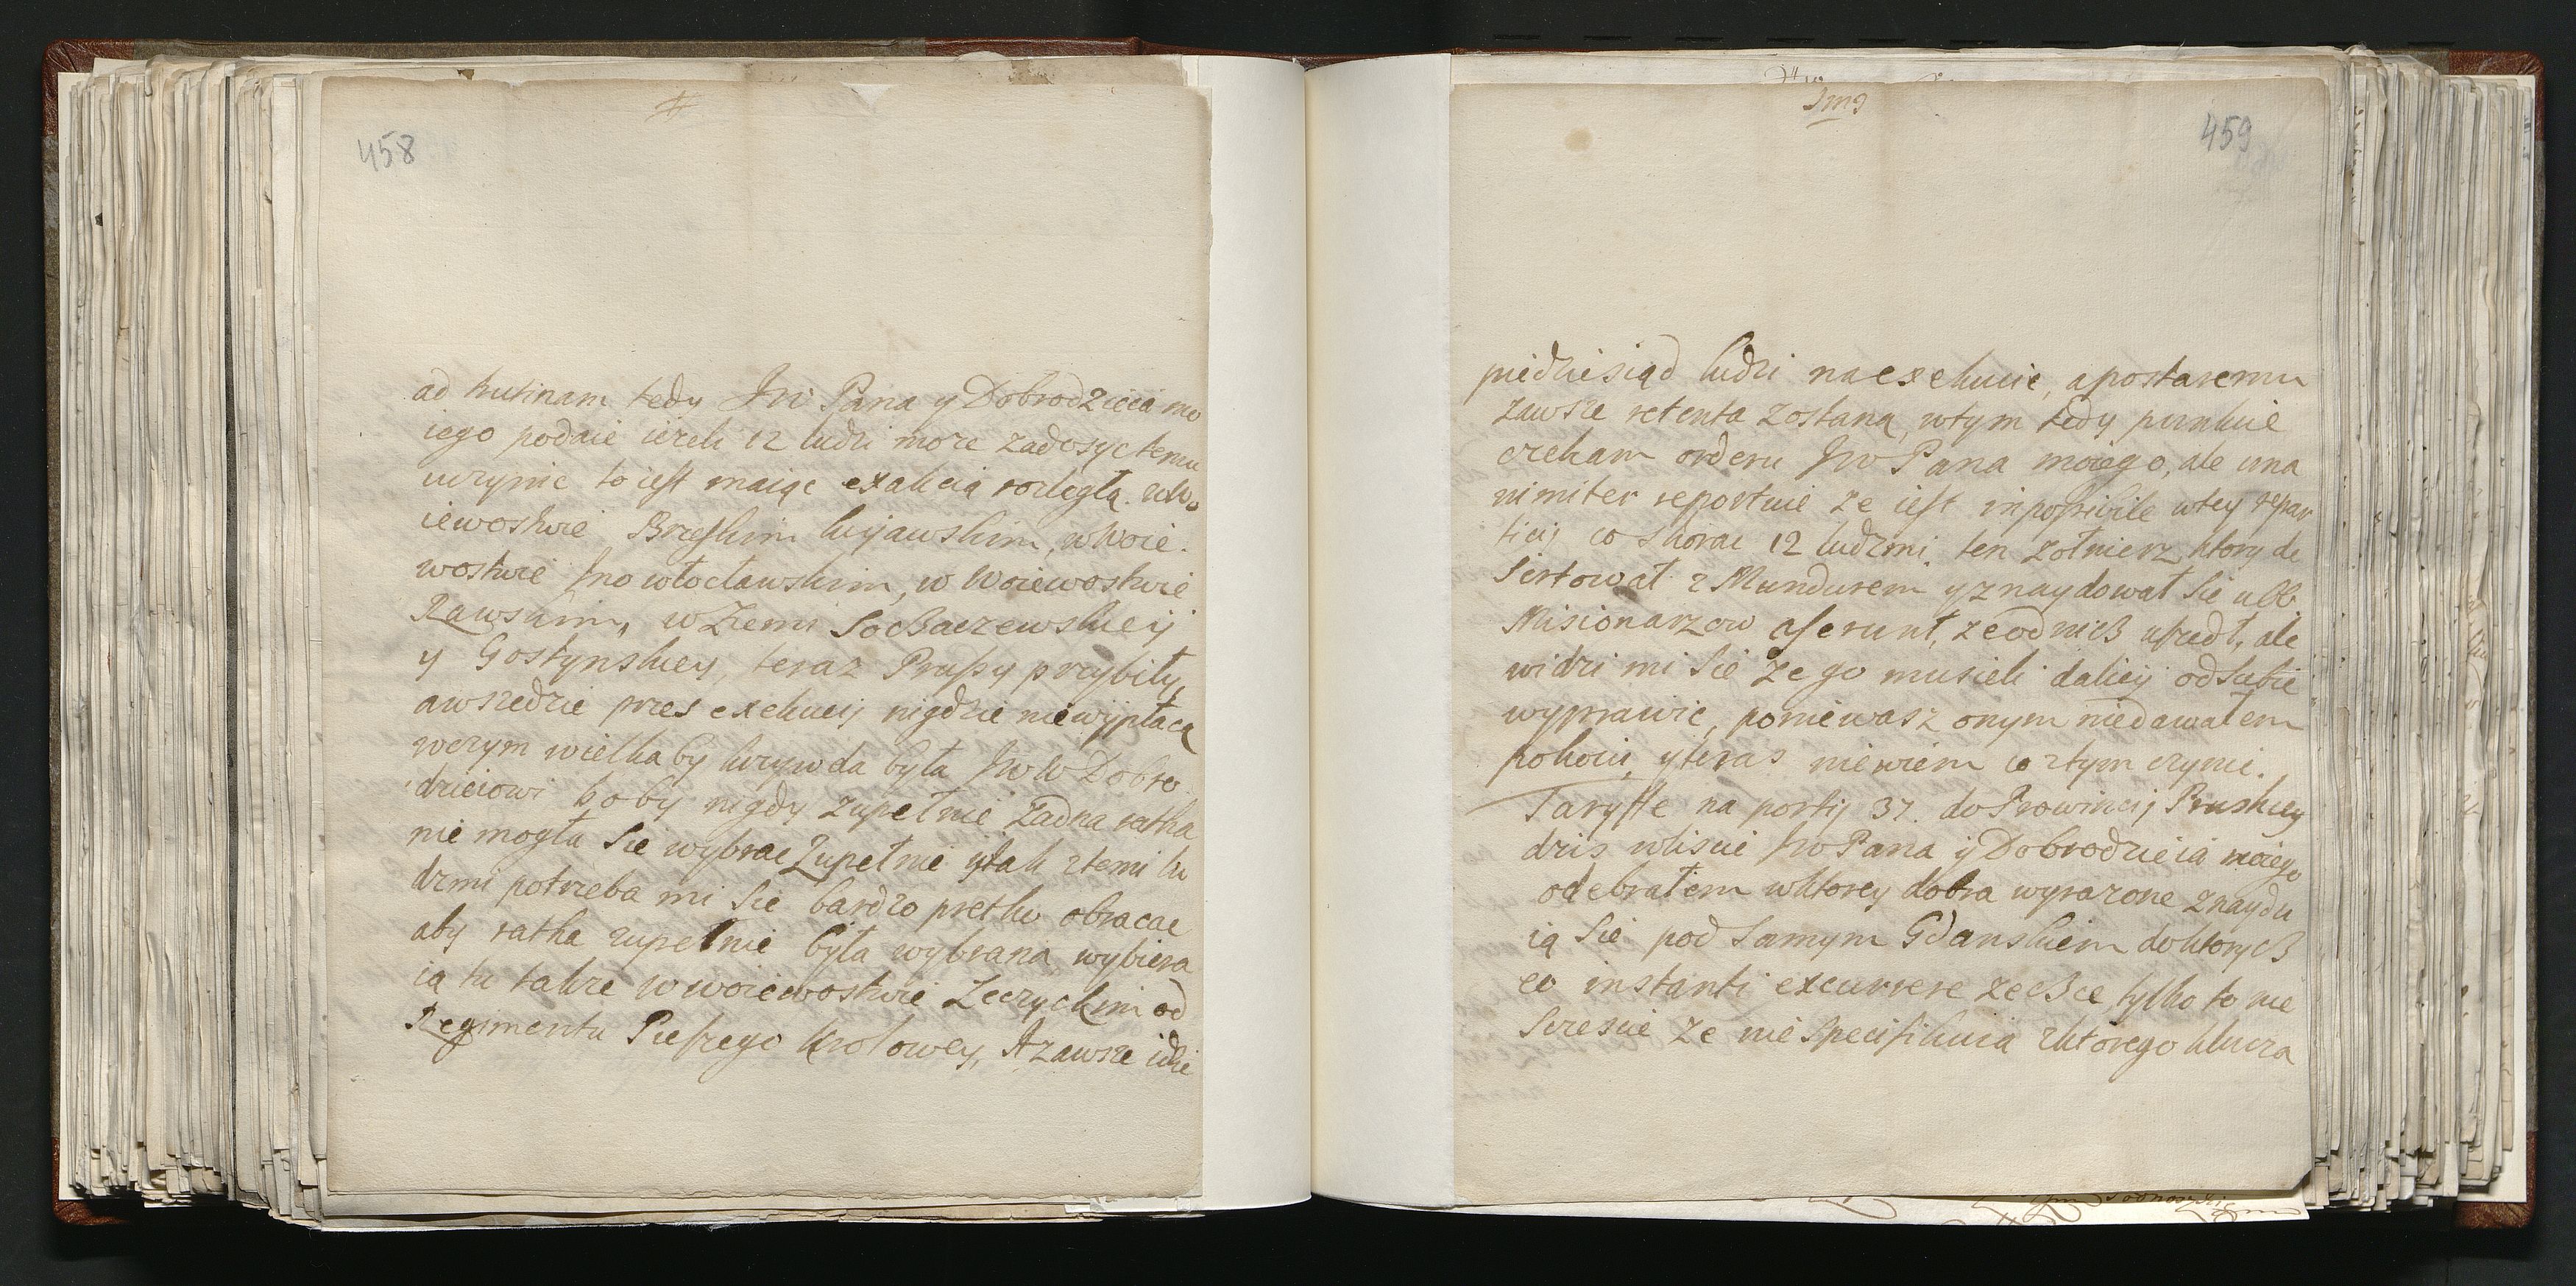 458
ad trutinam tedy Jw Pana y Dobrodzieia mo
iego podaie iezeli 12 ludzi moze zadosyc temu
uczynic to iest maiąc exakcią rozległą. w Wo
iewostwie Brzeskim kujawskim, w Woie.
wostwie Jnowłocławskim, w Woiewostwie
Rawskim, w Ziemi Sochaczewskieij
y Gostynskiey, teraz Prusy przybiły,
a wszedzie przes exekucij nigdzie niewijpłacą
wczym wielka by krzywda była Jw W Dobro
dzieiowi bo by nigdy zupełnie Zadna ratha
nie mogła Sie wybrac Zupełnie ij tak z temi lu
dzmi potrzeba mi Sie bardzo pretko obracac
aby ratha zupełnie była wybrana, wybiera
ia tu takze w woiewostwie Leczyckim od
Regimentu Pieszego krolowey, A zawsze idzie
Jmę
459
piedziesiąd ludzi na exekucie, a postaremu
zawsze retenta zostaną, wtym tedy punkcie
czekam orderu Jw Pana moiego, ale una
nimiter reportuie ze iest inpossibile wtey repar
ticij co skorac 12 ludzmi, ten zołnierz ktory de
sertował z Mundurem y znaydował Sie u BB
Misionarzow aserunt, ze od nich uszedł, ale
widzi mi Sie ze go musieli daliey od Siebie
wyprawic, poniewasz onym niedawałem
pokoiu, y teras niewiem co z tym czynic.
Taryffe na portij 37. do Prowincij Pruskiey
dzis w liscie Jw Pana ij Dobrodzieia moiego
odebrałem w ktorey dobra wyrazone znaydu
ią Sie pod Samym Gdanskiem do ktorych
ex instanti excurrere zechce, tylko to nie
Sczescie ze nie Specifikuią z ktorego klucza